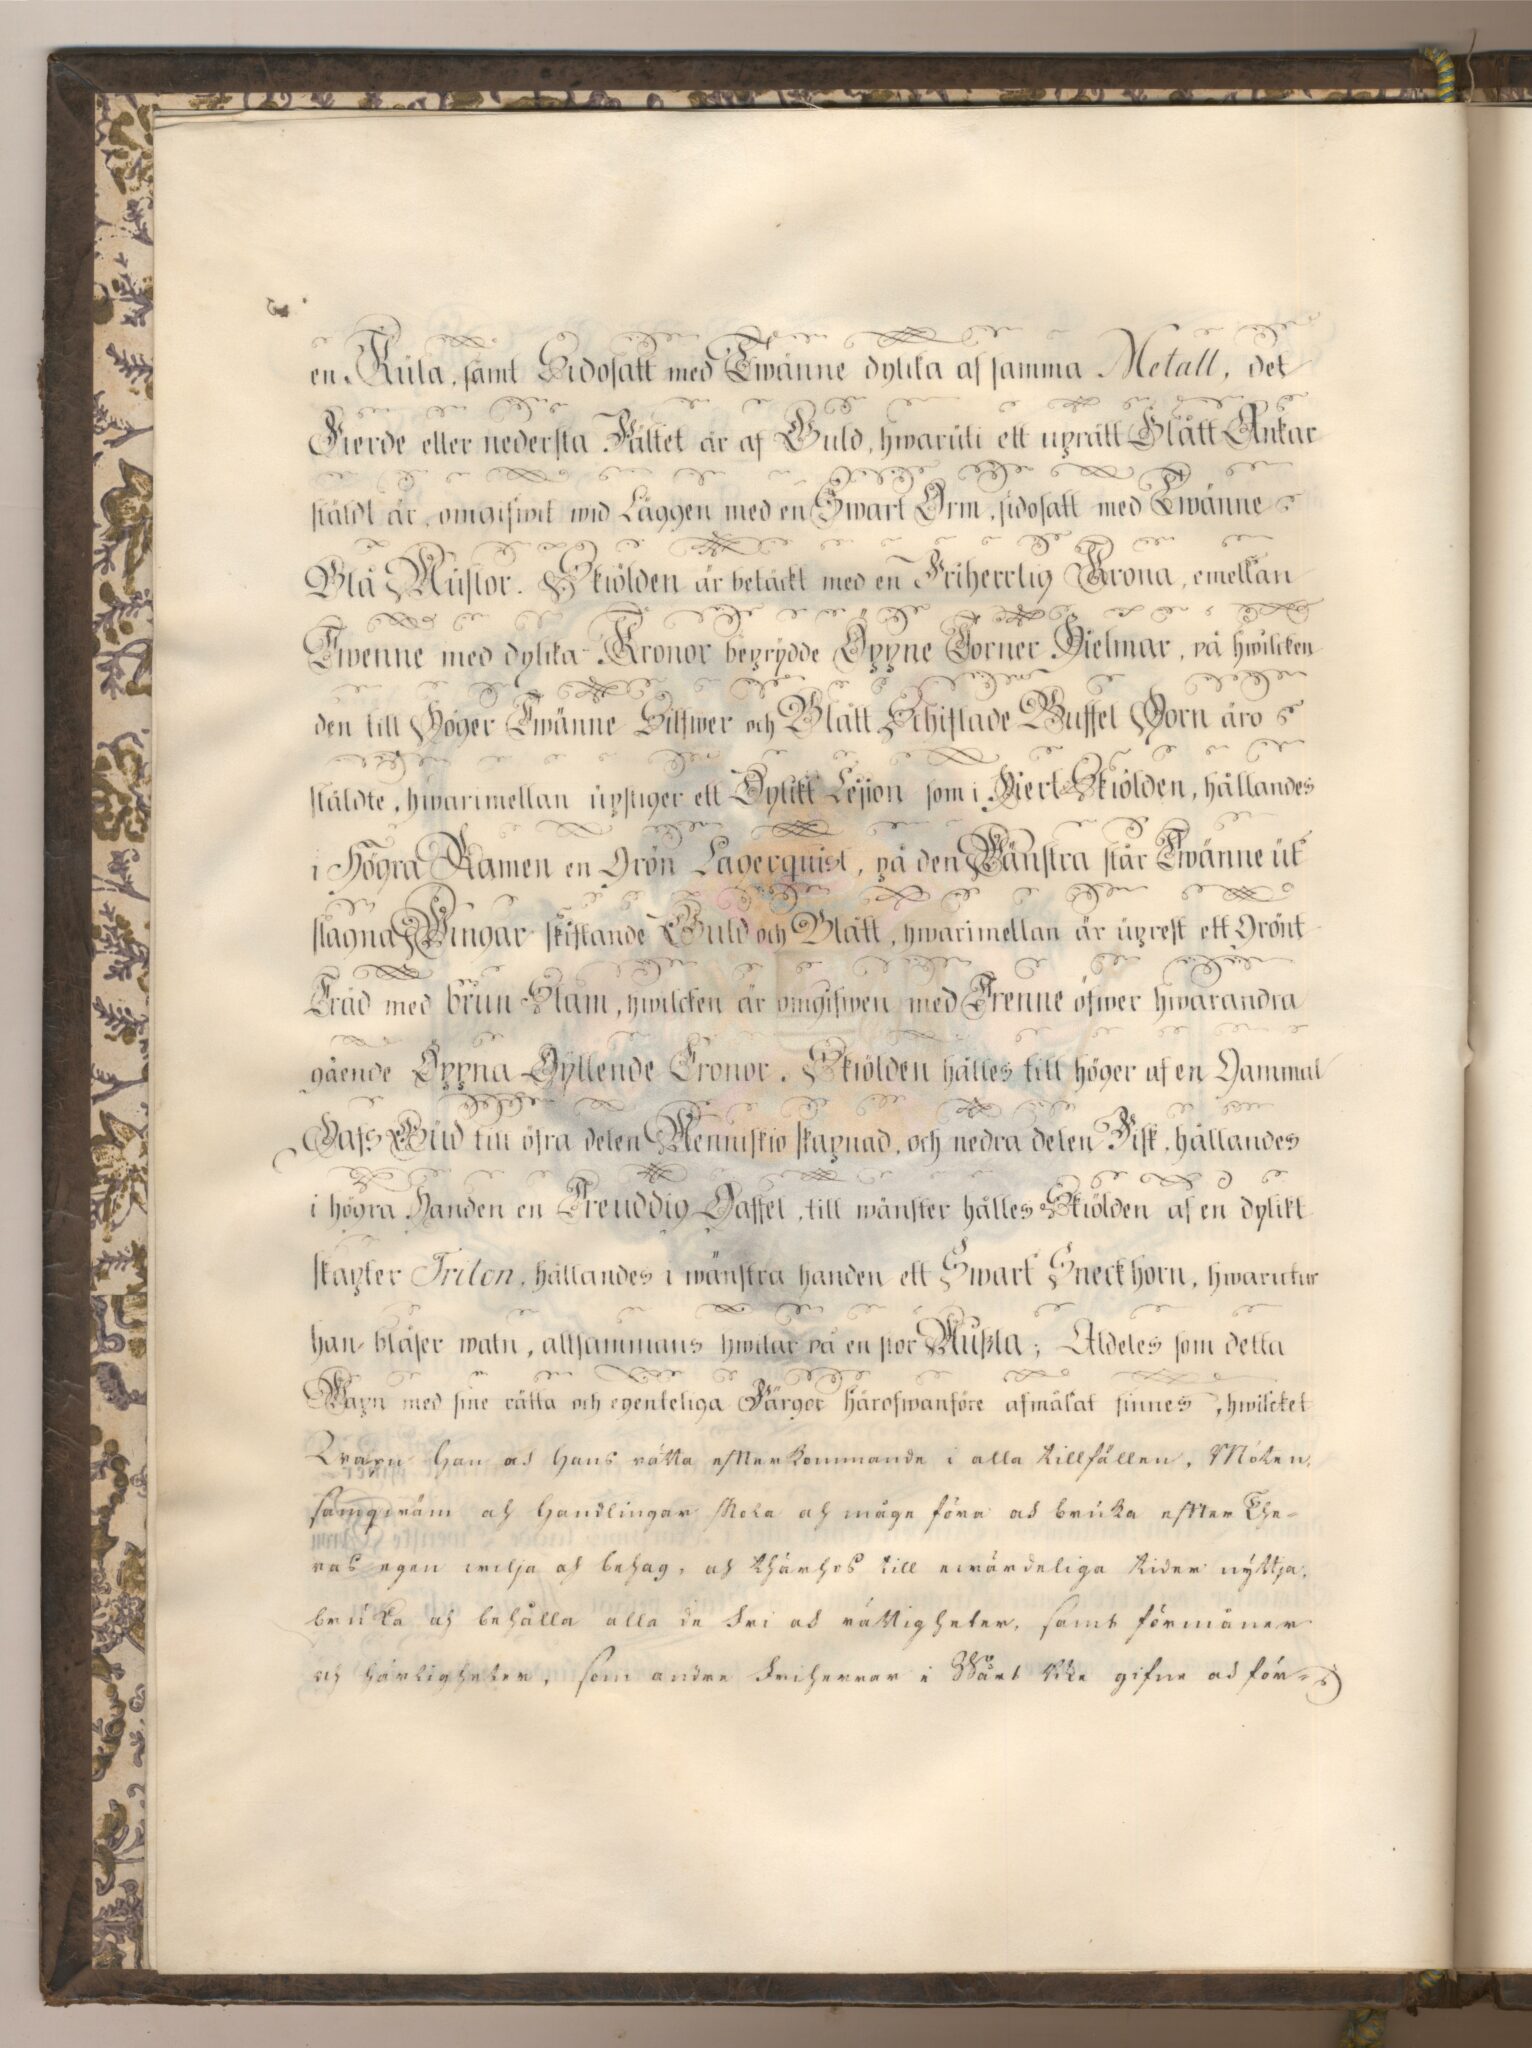 en Kula, samt Sidosatt med Twänne dylika af samma Metall, det
Fierde eller nedersta Fältet är af Guld, hwaruti ett uprätt Blått Ankar
stäldt är, omgifwit wid Läggen med en Swart Orm, sidosatt med Twänne
Blå Muslor. Skiölden är betäckt med en Friherrlig Krona, emellan
Twenne med dylika Kronor beprydde Öppne Torner Hielmar, på hwilcken
den till Höger Twänne Silfwer och Blått Schiftade Buffel Horn äro
stäldte, hwarimellan upstiger ett Dylikt Lejion som i Hiert Skiölden, hållandes
i Högra Ramen en Grön Lagerquist, på den Wänstra står Twänne ut
slagna Wingar skiftande Guld och Blått, hwarimellan är uprest ett Grönt
Träd med brun Stam, hwilcken är omgifwen med Trenne öfwer hwarandra
gående Öppna Gyllende Cronor. Skiölden hålles till höger af en Gammal
Hafs Gud till öfra delen Menniskio skapnad, och nedra delen Fisk, hållandes
i högra Handen en Treuddig Gaffel, till wänster hålles Skiölden af en dylikt
skapter Triton, hållandes i wänstra handen ett Swart Sneckhorn, hwarutur
han blåser watn, alltsammans hwilar på en stor Mußla; Aldeles som detta
Wapn med sine rätta och egenteliga Färgor härofwanföre afmålat finnes, hwilcket
Wapn han och hans rätta efterkommande i alla tillfällen, Möten,
samqwäm och handlingar skola och måge föra och bruka efter The-
ras egen wilja och behag, och thärhos till ewärdeliga tider nyttja,
bruka och behålla alla de Fri och rättigheter, samt förmåner
och härligheter, som andre Friherrar i Wårt Rike gifne och för-